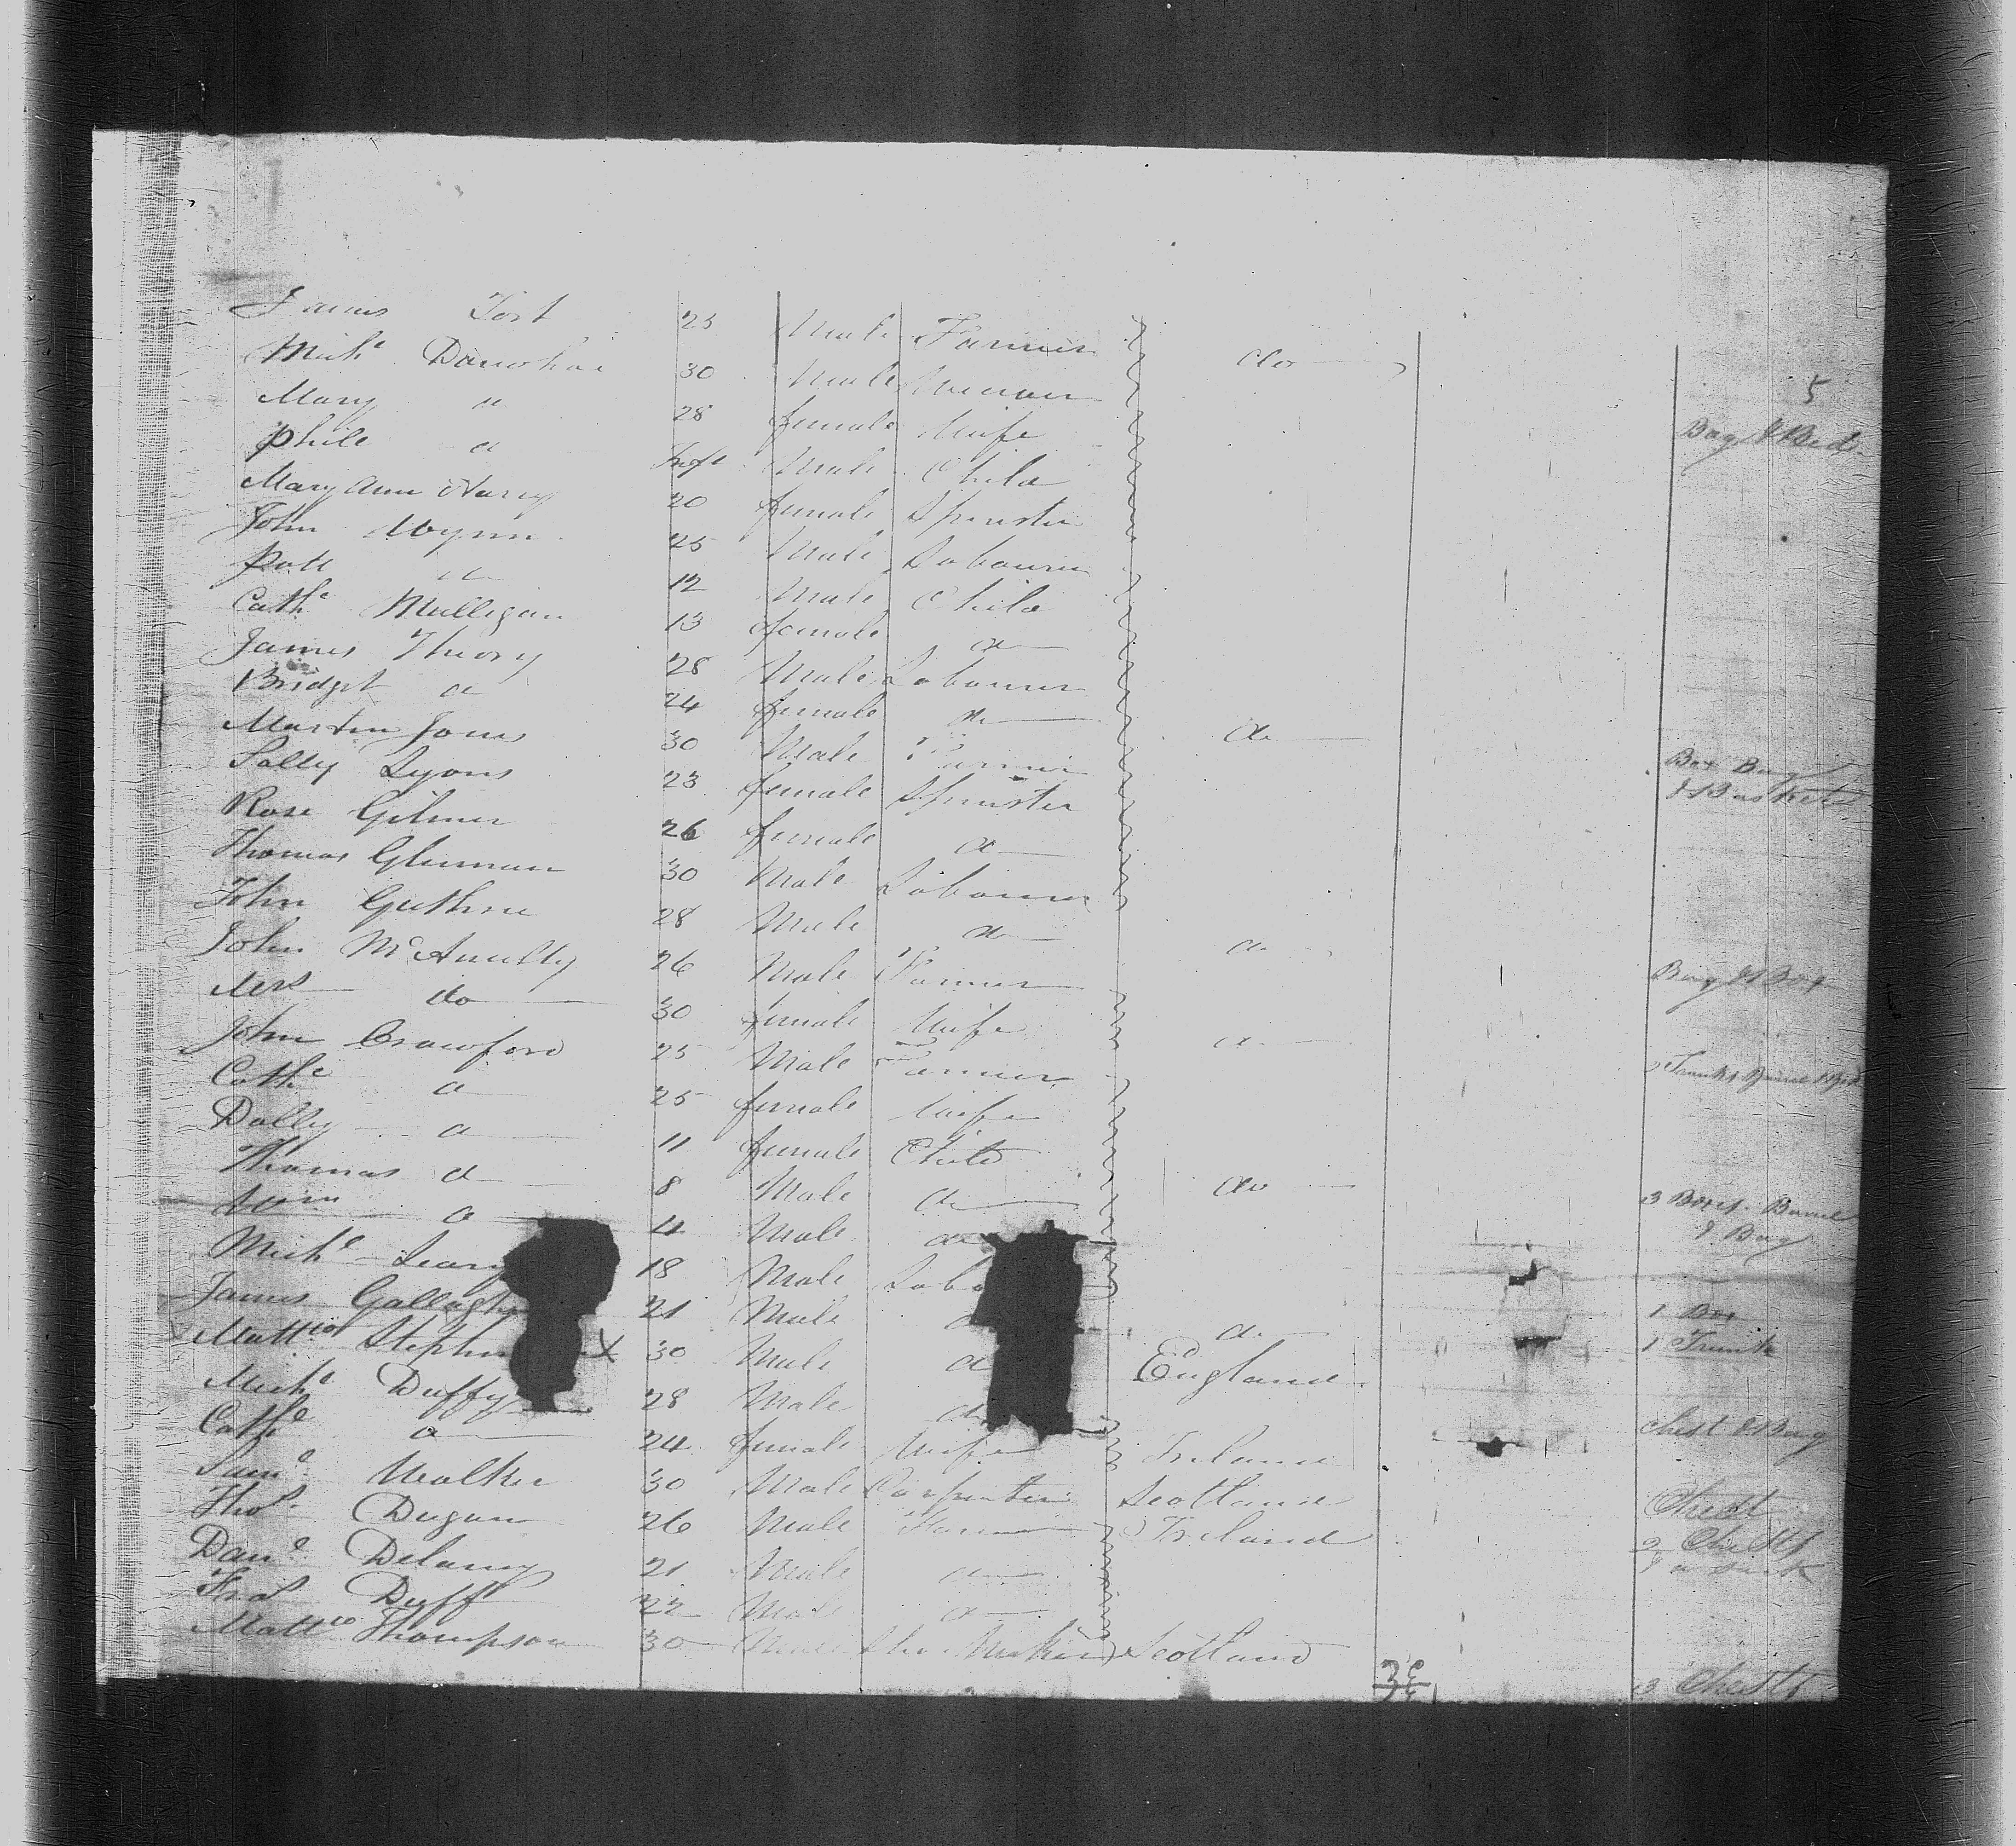 James 25 Male Farmer
Michl 30 Male do
Mary " 28 female Wife 5
Phile " Inft Male Child Bag & Bed
Mary Ann 20 female Spinster
John Wynn 25 Male Labourer
Patt do 12 Male Child
Cathe Mulligan 13 female do
James 28 Male Labourer
Bridget do 24 female do
Martin Jones 30 Male Farmer do
Sally Lyons 23 female Spinster Box Bag & Basket
Rose Gilmer 26 female do
Thomas 30 Male Labourer
John Guthrie 28 Male do
John McAnulty 26 Male Farmer do
Mrs do 30 female Wife Bag & Box
John Crawford 25 Male Farmer do
Cathe do 25 female Wife 2 Trunks
Dolly do 11 female Child
Thomas do 8 Male do do
Wm do 4 Male do 3 Boxes Barrel & Bag
Michl 18 Male Labo
James Gallagh 21 Male do 1 Box
Matthw Steph x 30 Male do England 1 Trunk
Michl Duffy 28 Male do
Cathe do 24 female Wife Ireland Chest & Bag
Saml Walker 30 Male Carpenter Scotland
Thos Dugan 26 Male Farmer Ireland Chest
Danl Delany 21 Male do 2 Chests
Fras Duff 22 Male do
Mattw Thompson 30 Male Shoe Maker Scotland
3 Chests